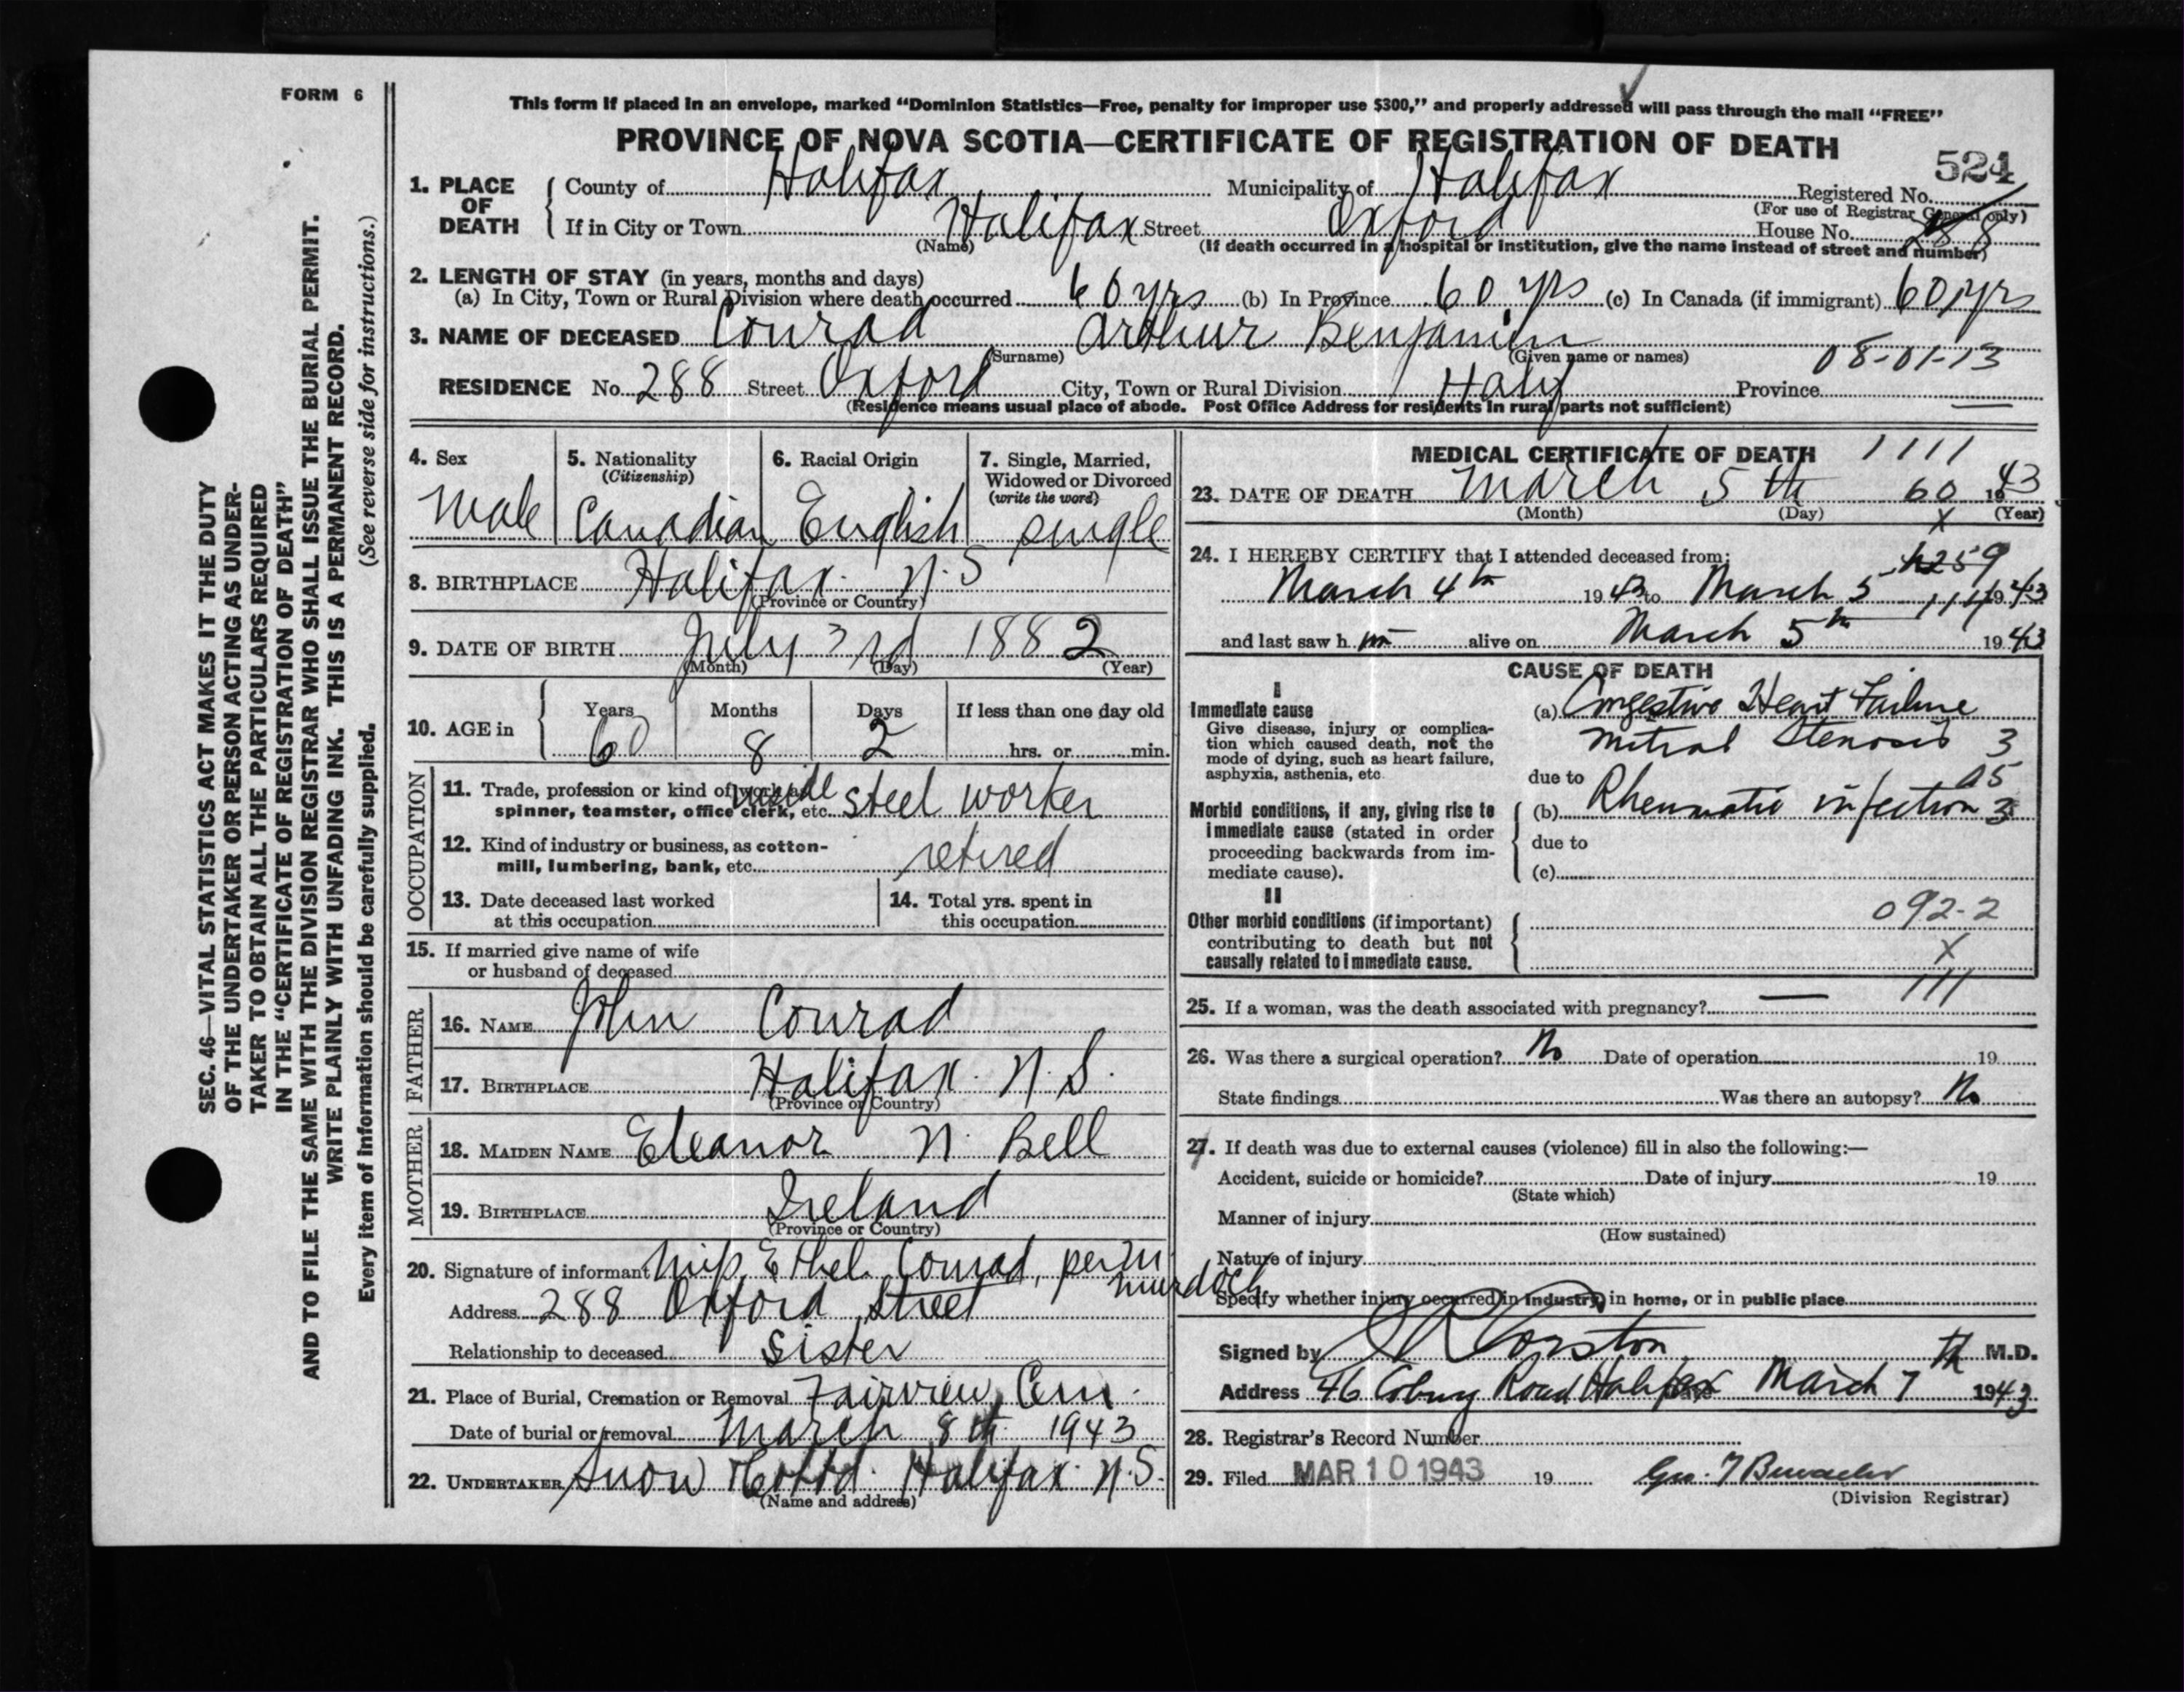 FORM 6
This form if placed in an envelope, marked “Dominion Statistics—Free, penalty for improper use $300,” and properly addressed will pass through the mail “FREE”
PROVINCE OF NOVA SCOTIA—CERTIFICATE OF REGISTRATION OF DEATH
524
1. PLACE OF DEATH
County of Halifax Municipality of Halifax Registered No.
(For use of Registrar General only)
If in City or Town Halifax Street Oxford House No. 288
(Name) (If death occurred in a hospital or institution, give the name instead of street and number)
2. LENGTH OF STAY (in years, months and days)
(a) In City, Town or Rural Division where death occurred 60 yrs (b) In Province 60 yrs (c) In Canada (if immigrant) 60 yrs
3. NAME OF DECEASED Conrad Arthur Benjamin
(Surname) (Given name or names) 08-01-13
RESIDENCE No. 288 Street Oxford City, Town or Rural Division Halif Province —
(Residence means usual place of abode. Post Office Address for residents in rural parts not sufficient)
4. Sex
Male
5. Nationality
(Citizenship)
Canadian
6. Racial Origin
English
7. Single, Married,
Widowed or Divorced
(write the word)
single
8. BIRTHPLACE Halifax. N.S
(Province or Country)
9. DATE OF BIRTH July 3rd 1882
(Month) (Day) (Year)
10. AGE in
Years Months Days If less than one day old
60 8 2 hrs. or min.
OCCUPATION
11. Trade, profession or kind of work as
spinner, teamster, office clerk, etc. steel worker
12. Kind of industry or business, as cotton-
mill, lumbering, bank, etc. retired
13. Date deceased last worked
at this occupation
14. Total yrs. spent in
this occupation
15. If married give name of wife
or husband of deceased
FATHER
16. NAME John Conrad
17. BIRTHPLACE Halifax. N.S.
(Province or Country)
MOTHER
18. MAIDEN NAME Eleanor N. Bell
19. BIRTHPLACE Ireland
(Province or Country)
20. Signature of informant Miss Ethel Conrad, per M
Murdoch
Address 288 Oxford Street
Relationship to deceased Sister
21. Place of Burial, Cremation or Removal Fairview Cem.
Date of burial or removal March 8th 1943
22. UNDERTAKER Snow & Co Ltd. Halifax. N.S.
(Name and address)
MEDICAL CERTIFICATE OF DEATH 1111
23. DATE OF DEATH March 5th 60 1943
(Month) (Day) X (Year)
24. I HEREBY CERTIFY that I attended deceased from:
March 4th 1943 to March 5 1943
and last saw h im alive on March 5th 1943
CAUSE OF DEATH
I
Immediate cause
Give disease, injury or complica-
tion which caused death, not the
mode of dying, such as heart failure,
asphyxia, asthenia, etc.
(a) Congestive Heart Failure
Mitral Stenosis 3
due to
Morbid conditions, if any, giving rise to
immediate cause (stated in order
proceeding backwards from im-
mediate cause).
(b) Rheumatic infection 3
due to
(c)
II
Other morbid conditions (if important)
contributing to death but not
causally related to immediate cause.
092-2
X
111
25. If a woman, was the death associated with pregnancy? —
26. Was there a surgical operation? No Date of operation 19
State findings Was there an autopsy? No
27. If death was due to external causes (violence) fill in also the following:—
Accident, suicide or homicide? Date of injury 19
(State which)
Manner of injury
(How sustained)
Nature of injury
Specify whether injury occurred in industry, in home, or in public place
Signed by Corston M.D.
Address 46 Coburg Road Halifax March 7th 1943
28. Registrar's Record Number
29. Filed MAR 10 1943 19 Geo.
(Division Registrar)
SEC. 46—VITAL STATISTICS ACT MAKES IT THE DUTY
OF THE UNDERTAKER OR PERSON ACTING AS UNDER-
TAKER TO OBTAIN ALL THE PARTICULARS REQUIRED
IN THE “CERTIFICATE OF REGISTRATION OF DEATH”
AND TO FILE THE SAME WITH THE DIVISION REGISTRAR WHO SHALL ISSUE THE BURIAL PERMIT.
WRITE PLAINLY WITH UNFADING INK. THIS IS A PERMANENT RECORD.
Every item of information should be carefully supplied. (See reverse side for instructions.)